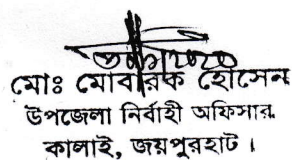 মোঃ মোবারক হোসেন
উপজেলা নির্বাহী অফিসার
কালাই, জয়পুরহাট।